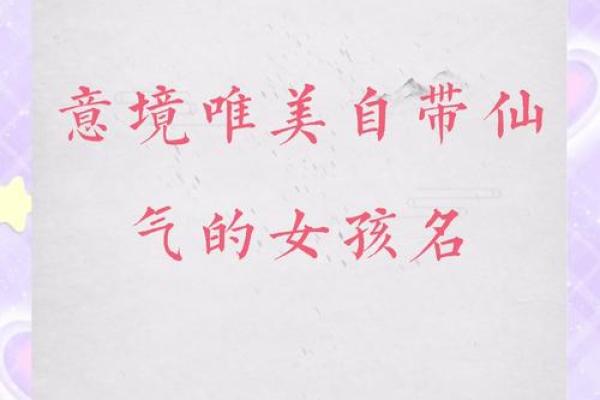 意境唯美自带仙
气的女孩名